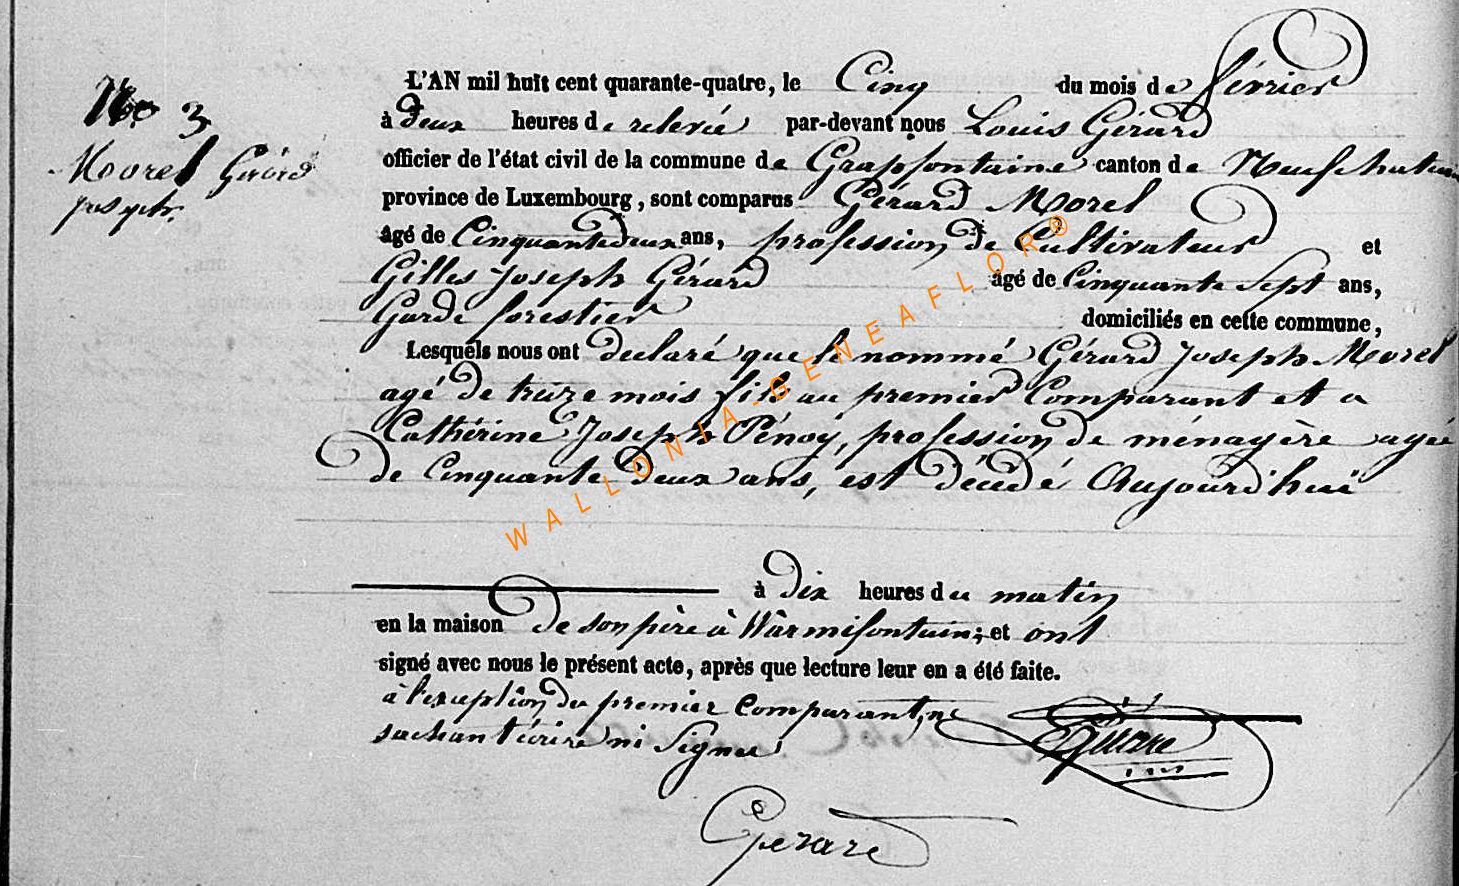 No 3
Morel Gérard
joseph.
L'AN mil huit cent quarante-quatre, le Cinq du mois de février
à deux heures de relevée par-devant nous Louis Gérard
officier de l'état civil de la commune de Grapfontaine canton de Neufchateau
province de Luxembourg, sont comparus Gérard Morel
âgé de Cinquante deux ans, profession de Cultivateur et
Gilles Joseph Gérard âgé de Cinquante Sept ans,
Garde forestier domiciliés en cette commune,
Lesquels nous ont declaré que le nommé Gérard Joseph Morel
agé de treize mois fils au premier Comparant et a
Cathérine Joseph Pénoy, profession de ménagère agée
de Cinquante deux ans, est décédé Aujourd'hui
à dix heures du matin
en la maison de son père à Warmifontaine; et ont
signé avec nous le présent acte, après que lecture leur en a été faite.
à l'exception du premier comparant, ne
sachant écrire ni Signer
Gérard
Gerard
WALLONIA-GENEAFLOR®